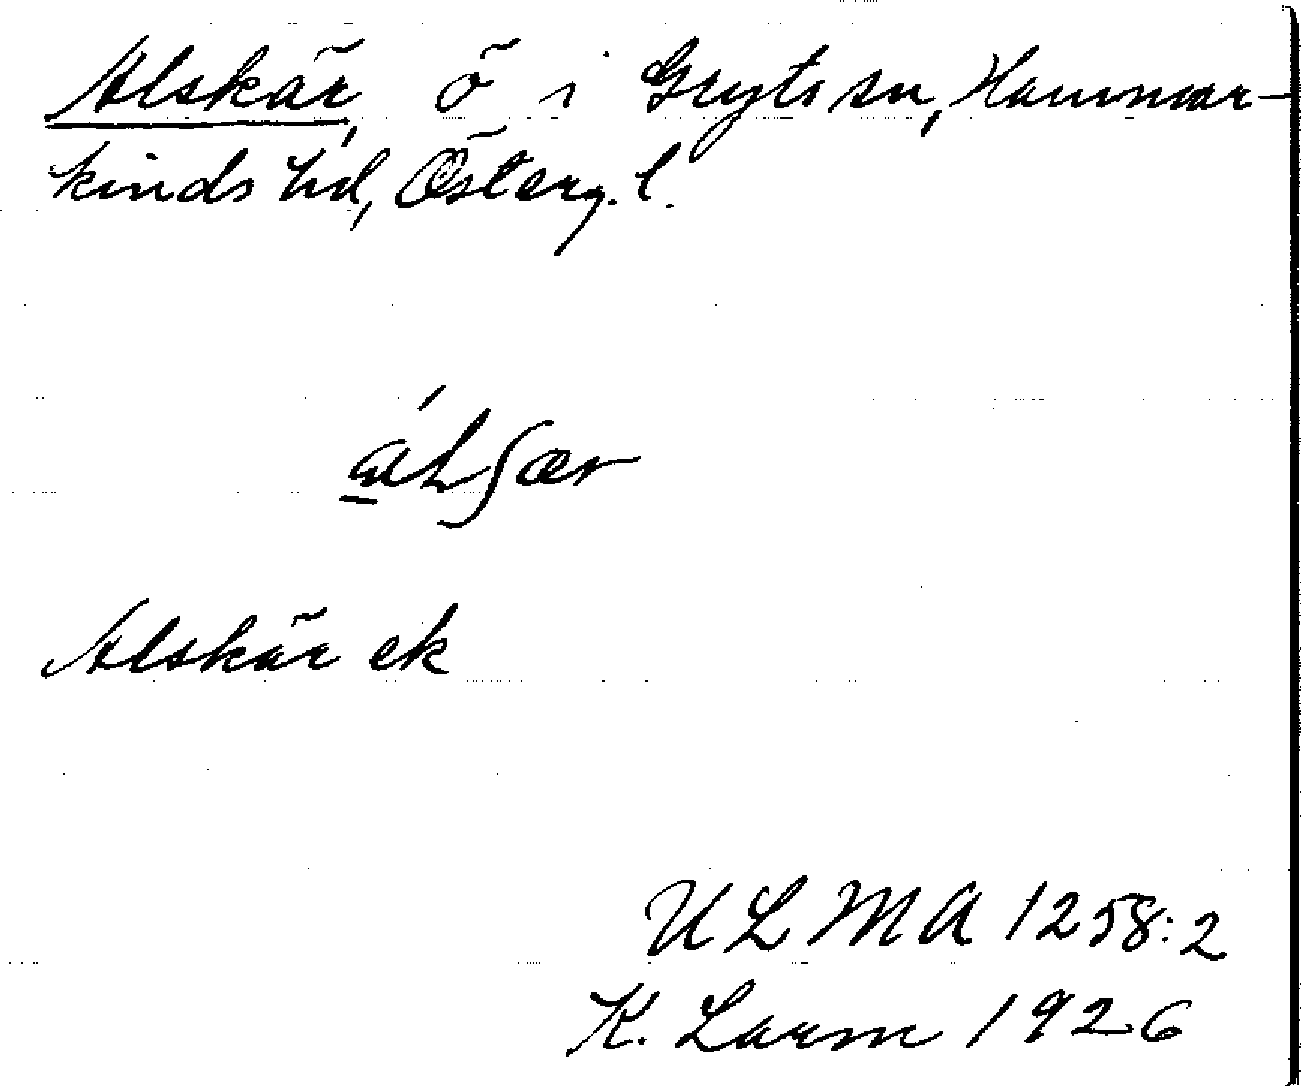 Alskär, ö i Gryts sn, Hammar-
kinds hd, Österg. l.
a̱´lʃær
Alskär ek
ULMA 1258:2
K. Larm 1926